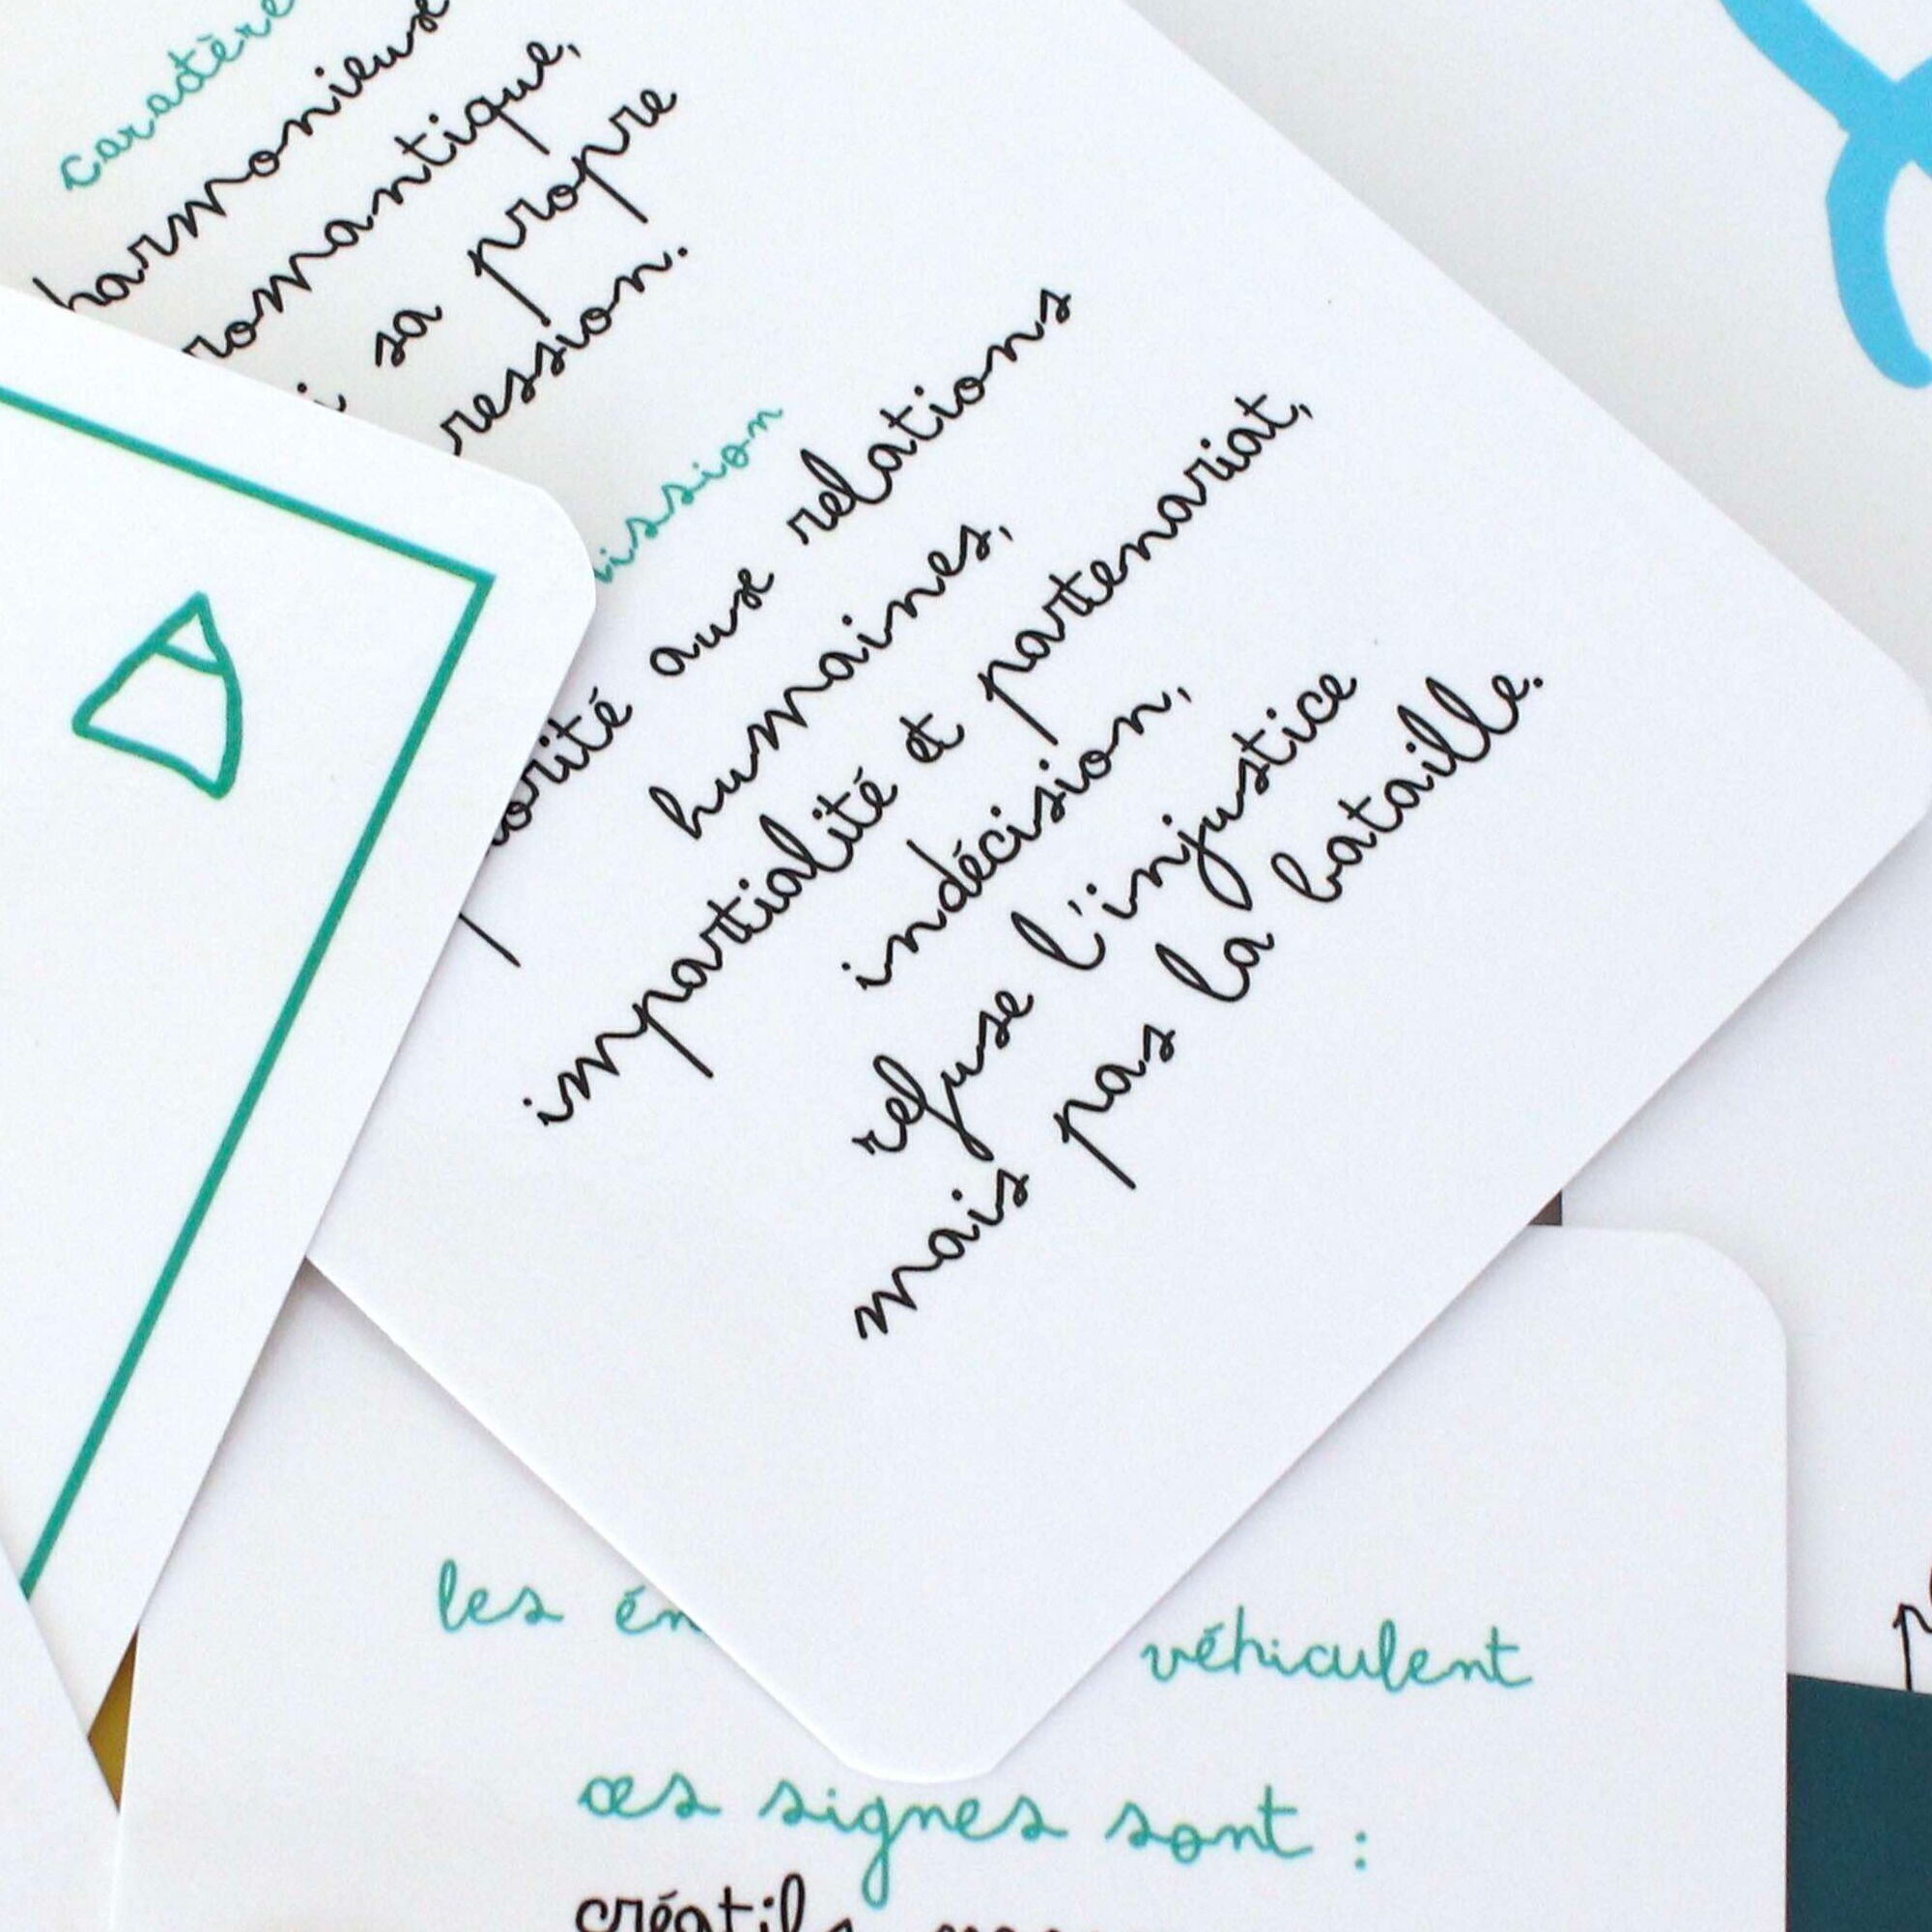 caractère
harmonieuse
romantique,
sa propre
ression.
ission
orité aux relations
humaines,
impartialité et partenariat,
indécision,
refuse l'injustice
mais pas la bataille.
les én véhiculent
ces signes sont :
créatif